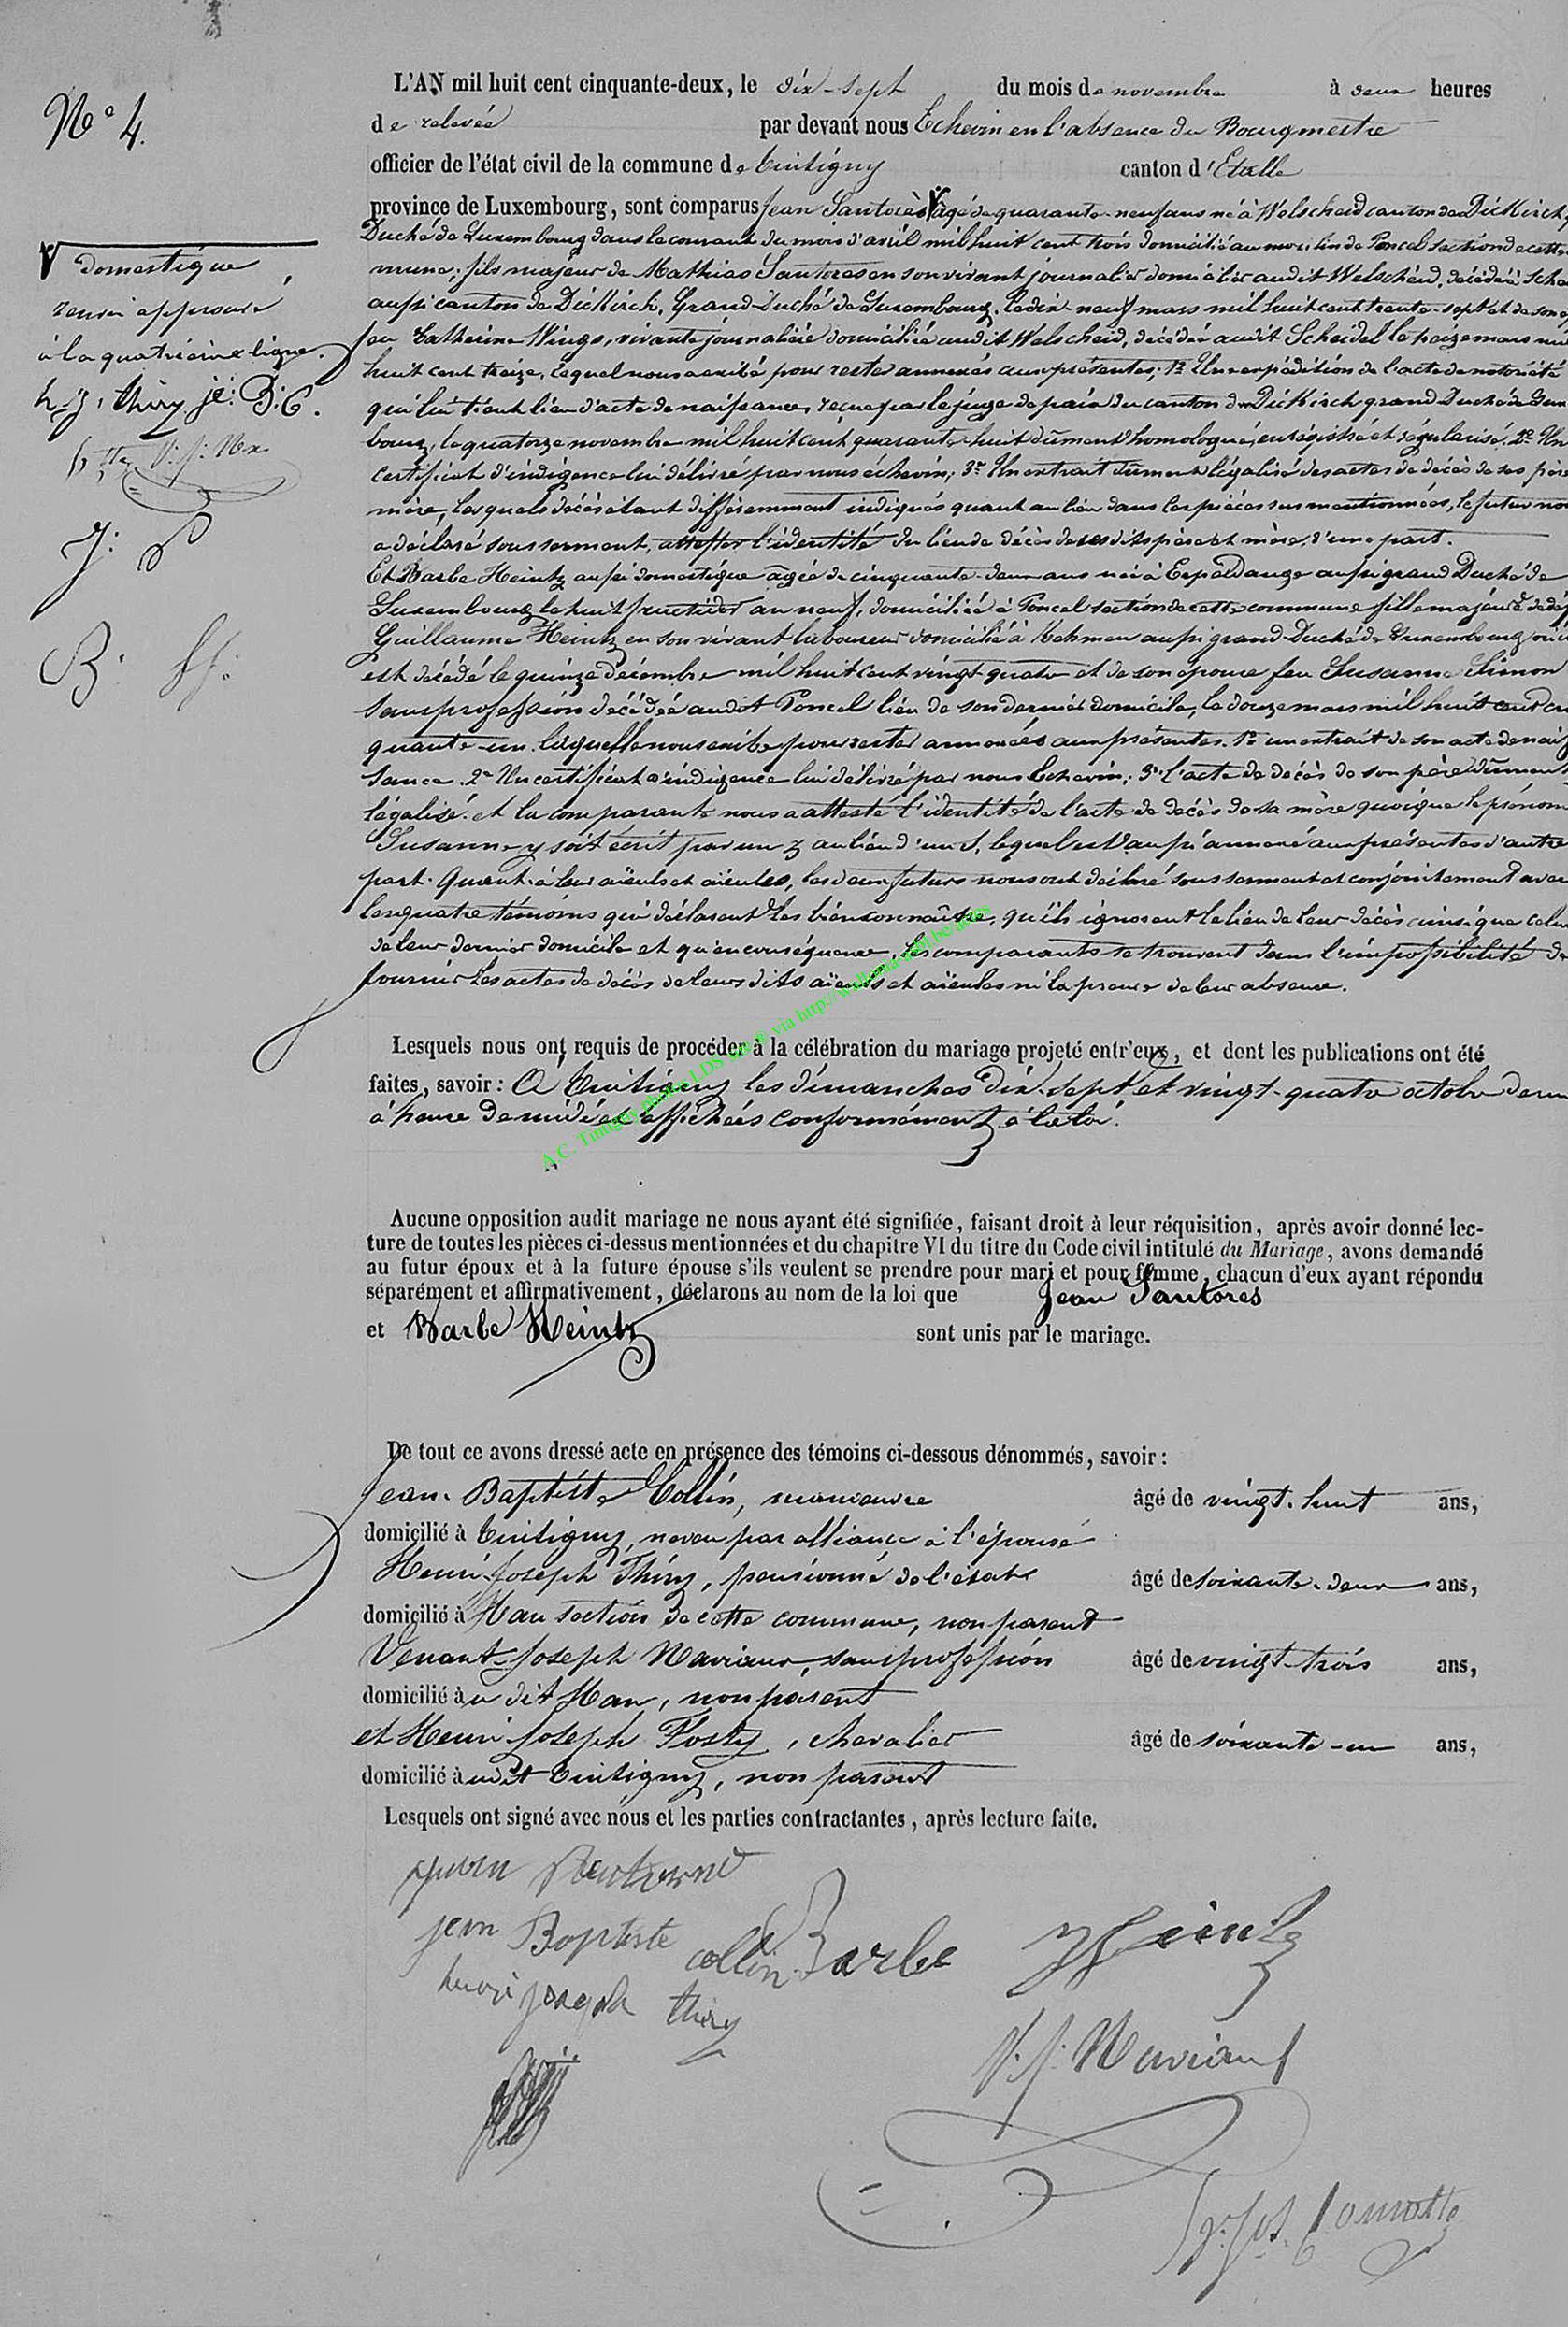 N° 4.
L'AN mil huit cent cinquante-deux, le dix-sept du mois de novembre à deux heures
de relevée par devant nous Echevin en l'absence du Bourgmestre
officier de l'état civil de la commune de Tintigny canton d'Etalle
province de Luxembourg, sont comparus Jean Santorès âgé de quarante-neuf ans né à Welscheid canton de Diekirch,
Duché de Luxembourg dans le courant du mois d'avril mil huit cent trois domicilié au moulin de Poncel section de cette
mune; fils majeur de Mathias Santores en son vivant journalier domicilié audit Welscheid, décédé à
aussi canton de Diekirch, Grand-Duché de Luxembourg, le dix-neuf mars mil huit cent trente-sept et de son
feu Catherine Wings, vivante journalière domiciliée audit Welscheid, décédée audit Scheidel le treize mars mil
huit cent treize, lequel nous a exibé pour rester annexés aux présentes; 1° Une expédition de l'acte de notoriété
qui lui tient lieu d'acte de naissance, reçue par le juge de paix du canton de Diekirch grand Duché de
bourg, le quatorze novembre mil huit cent quarante-huit dûment homologué, enrégistré et régularisé. 2° Un
certificat d'indigence lui délivré par nous échevin; 3° Un extrait dûment légalisé des actes de décès de ses père
mère, lesquels décès étant différemment indiqués quant au lieu dans les pièces susmentionnées, le futur nous
a déclaré sous serment, attester l'identité du lieu de décès de ses dits père et mère, d'une part.
Et Barbe Heintz aussi domestique âgée de cinquante-deux ans née à Erpeldange aussi grand Duché de
Luxembourg le huit fructidor an neuf, domiciliée à Poncel section de cette commune fille majeure de
Guillaume Heintz en son vivant laboureur domicilié à Kehmen aussi grand-Duché de Luxembourg où il
est décédé le quinze décembre mil huit cent vingt-quatre et de son épouse feu Susanne Simon
sans profession décédée audit Poncel lieu de son dernier domicile, le douze mars mil huit cent
quante-un. laquelle nous exibe pour rester annexés aux présentes. 1° un extrait de son acte de nais
sance. 2° Un certificat d'indigence lui délivré par nous Echevin; 3° l'acte de décès de son père dûment
légalisé. et la comparante nous a attesté l'identité de l'acte de décès de sa mère quoique le prénom
Susanne y soit écrit par un z au lieu d'un S, lequel est aussi annexé aux présentes d'autre
part. Quant à leur aïeuls et aïeules, les deux futurs nous ont déclaré sous serment et conjointement avec
les quatre témoins qui déclarent les bien connaître, qu'ils ignorent le lieu de leur décès ainsi que celui
de leur dernier domicile et qu'en conséquence, les comparants se trouvent dans l'impossibilité de
fournir les actes de décès de leurs dits aïeuls et aïeules ni la preuve de leur absence.
domestique
renvoi approuvé
à la quatrième ligne.
h. j. thiry je: B: C.
V: j: Nx
J: S
B: H:
Lesquels nous ont requis de procéder à la célébration du mariage projeté entr'eux, et dont les publications ont été
faites, savoir: A Tintigny les dimanches dix-sept et vingt-quatre octobre
à heure de midi et affichées conformément à la loi.
A.C. Tintigny photo LDS via http://
Aucune opposition audit mariage ne nous ayant été signifiée, faisant droit à leur réquisition, après avoir donné lec-
ture de toutes les pièces ci-dessus mentionnées et du chapitre VI du titre du Code civil intitulé du Mariage, avons demandé
au futur époux et à la future épouse s'ils veulent se prendre pour mari et pour femme, chacun d'eux ayant répondu
séparément et affirmativement, déclarons au nom de la loi que Jean Santores
et Barbe Heintz sont unis par le mariage.
De tout ce avons dressé acte en présence des témoins ci-dessous dénommés, savoir:
Jean-Baptiste Collin, manœuvre âgé de vingt-huit ans,
domicilié à Tintigny, neveu par alliance à l'épouse
Henri-Joseph Thiry, pensionné de l'état âgé de soixante-deux ans,
domicilié à Han section de cette commune, non parent
Venant-Joseph Naviaux, sans profession âgé de vingt-trois ans,
domicilié à u dit Han, non parent
et Henri-Joseph Flosty, chevalier âgé de soixante-un ans,
domicilié à udit Tintigny, non parent
Lesquels ont signé avec nous et les parties contractantes, après lecture faite.
jean
jean Baptiste collin Barbe Heintz
henri joseph thiry
V. j. Naviaux